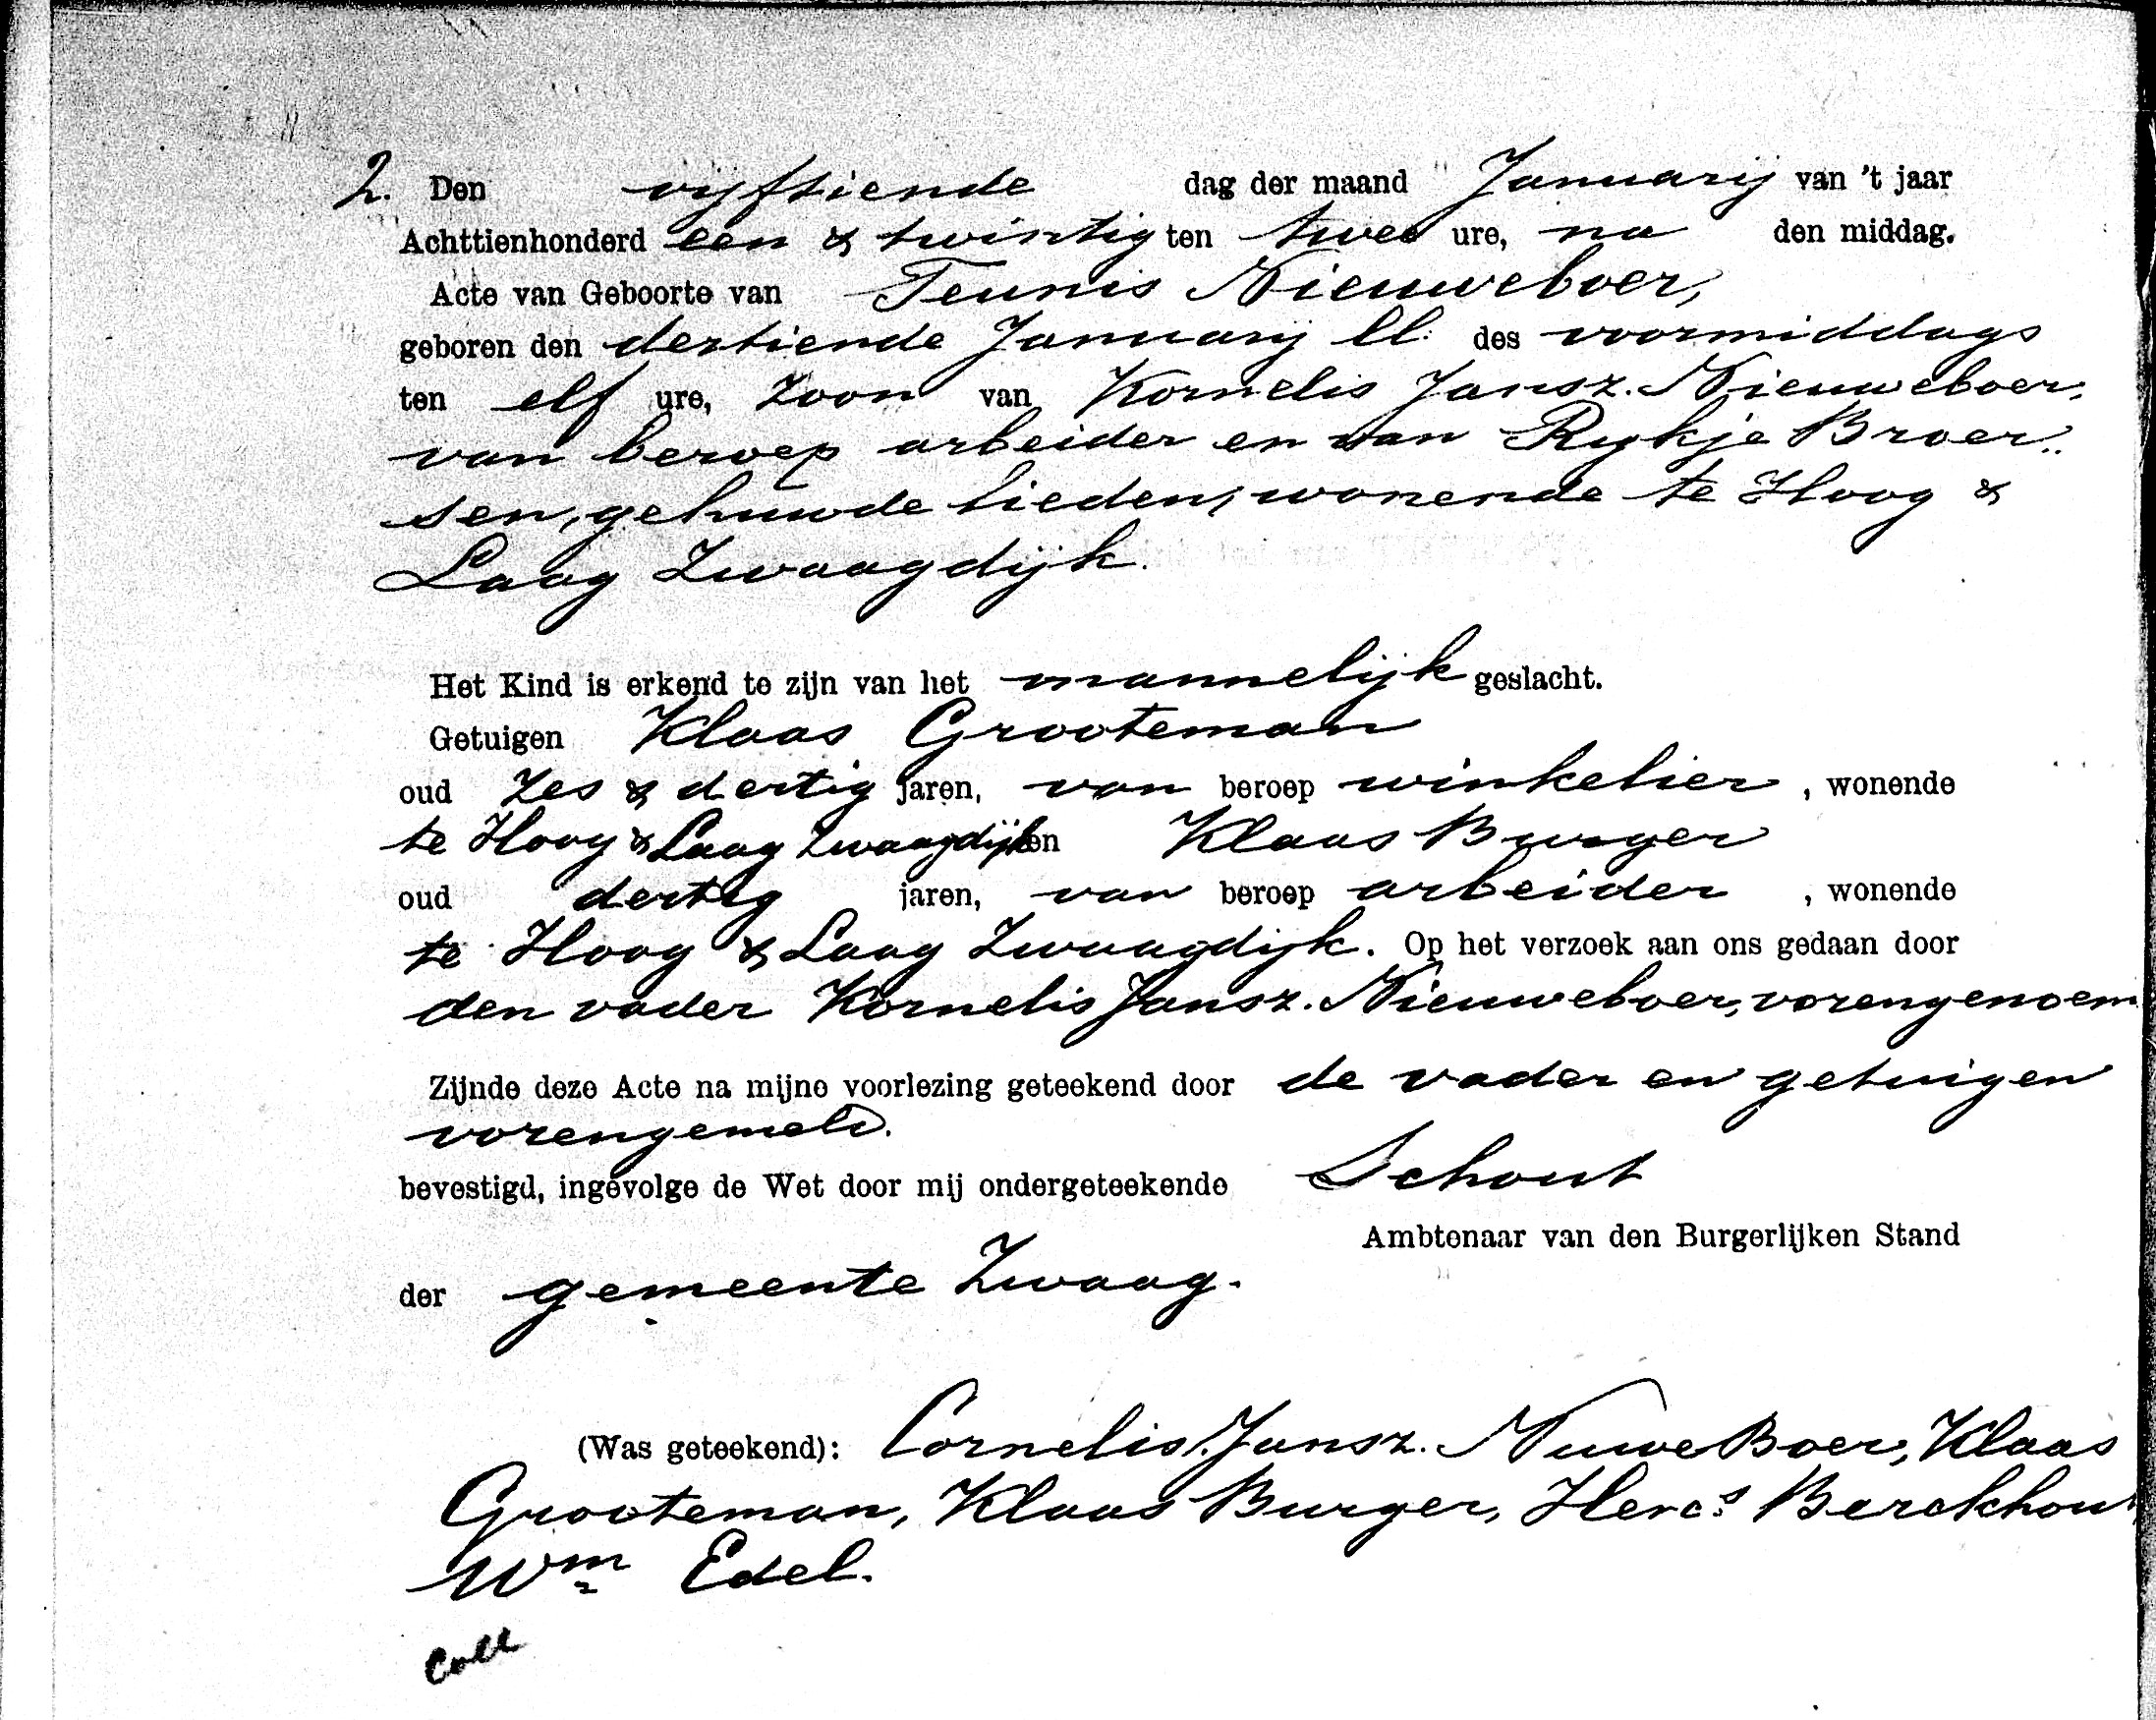 2. Den vijftiende dag der maand Januarij van 't jaar
Achttienhonderd een & twintig ten twee ure, na den middag.
Acte van Geboorte van Teunis Nieuweboer,
geboren den dertiende Januarij ll: des voormiddags
ten elf ure, zoon van Kornelis Jansz. Nieuweboer,
van beroep arbeider en van Rykje Broer„
sen, gehuwde lieden, wonende te Hoog &
Laag Zwaagdijk.
Het Kind is erkend te zijn van het mannelijk geslacht.
Getuigen Klaas Grooteman
oud zes & dertig jaren, van beroep winkelier, wonende
te Hoog & Laag Zwaagdijk en Klaas Burger
oud dertig jaren, van beroep arbeider, wonende
te Hoog & Laag Zwaagdijk. Op het verzoek aan ons gedaan door
den vader Kornelis Jansz. Nieuweboer, vorengenoem
Zijnde deze Acte na mijne voorlezing geteekend door de vader en getuigen
vorengemeld.
bevestigd, ingevolge de Wet door mij ondergeteekende Schout
Ambtenaar van den Burgerlijken Stand
der gemeente Zwaag.
(Was geteekend): Cornelis Jansz. Nuwe Boer, Klaas
Grooteman, Klaas Burger, Hercs Berckhout
Wm Edel.
Coll